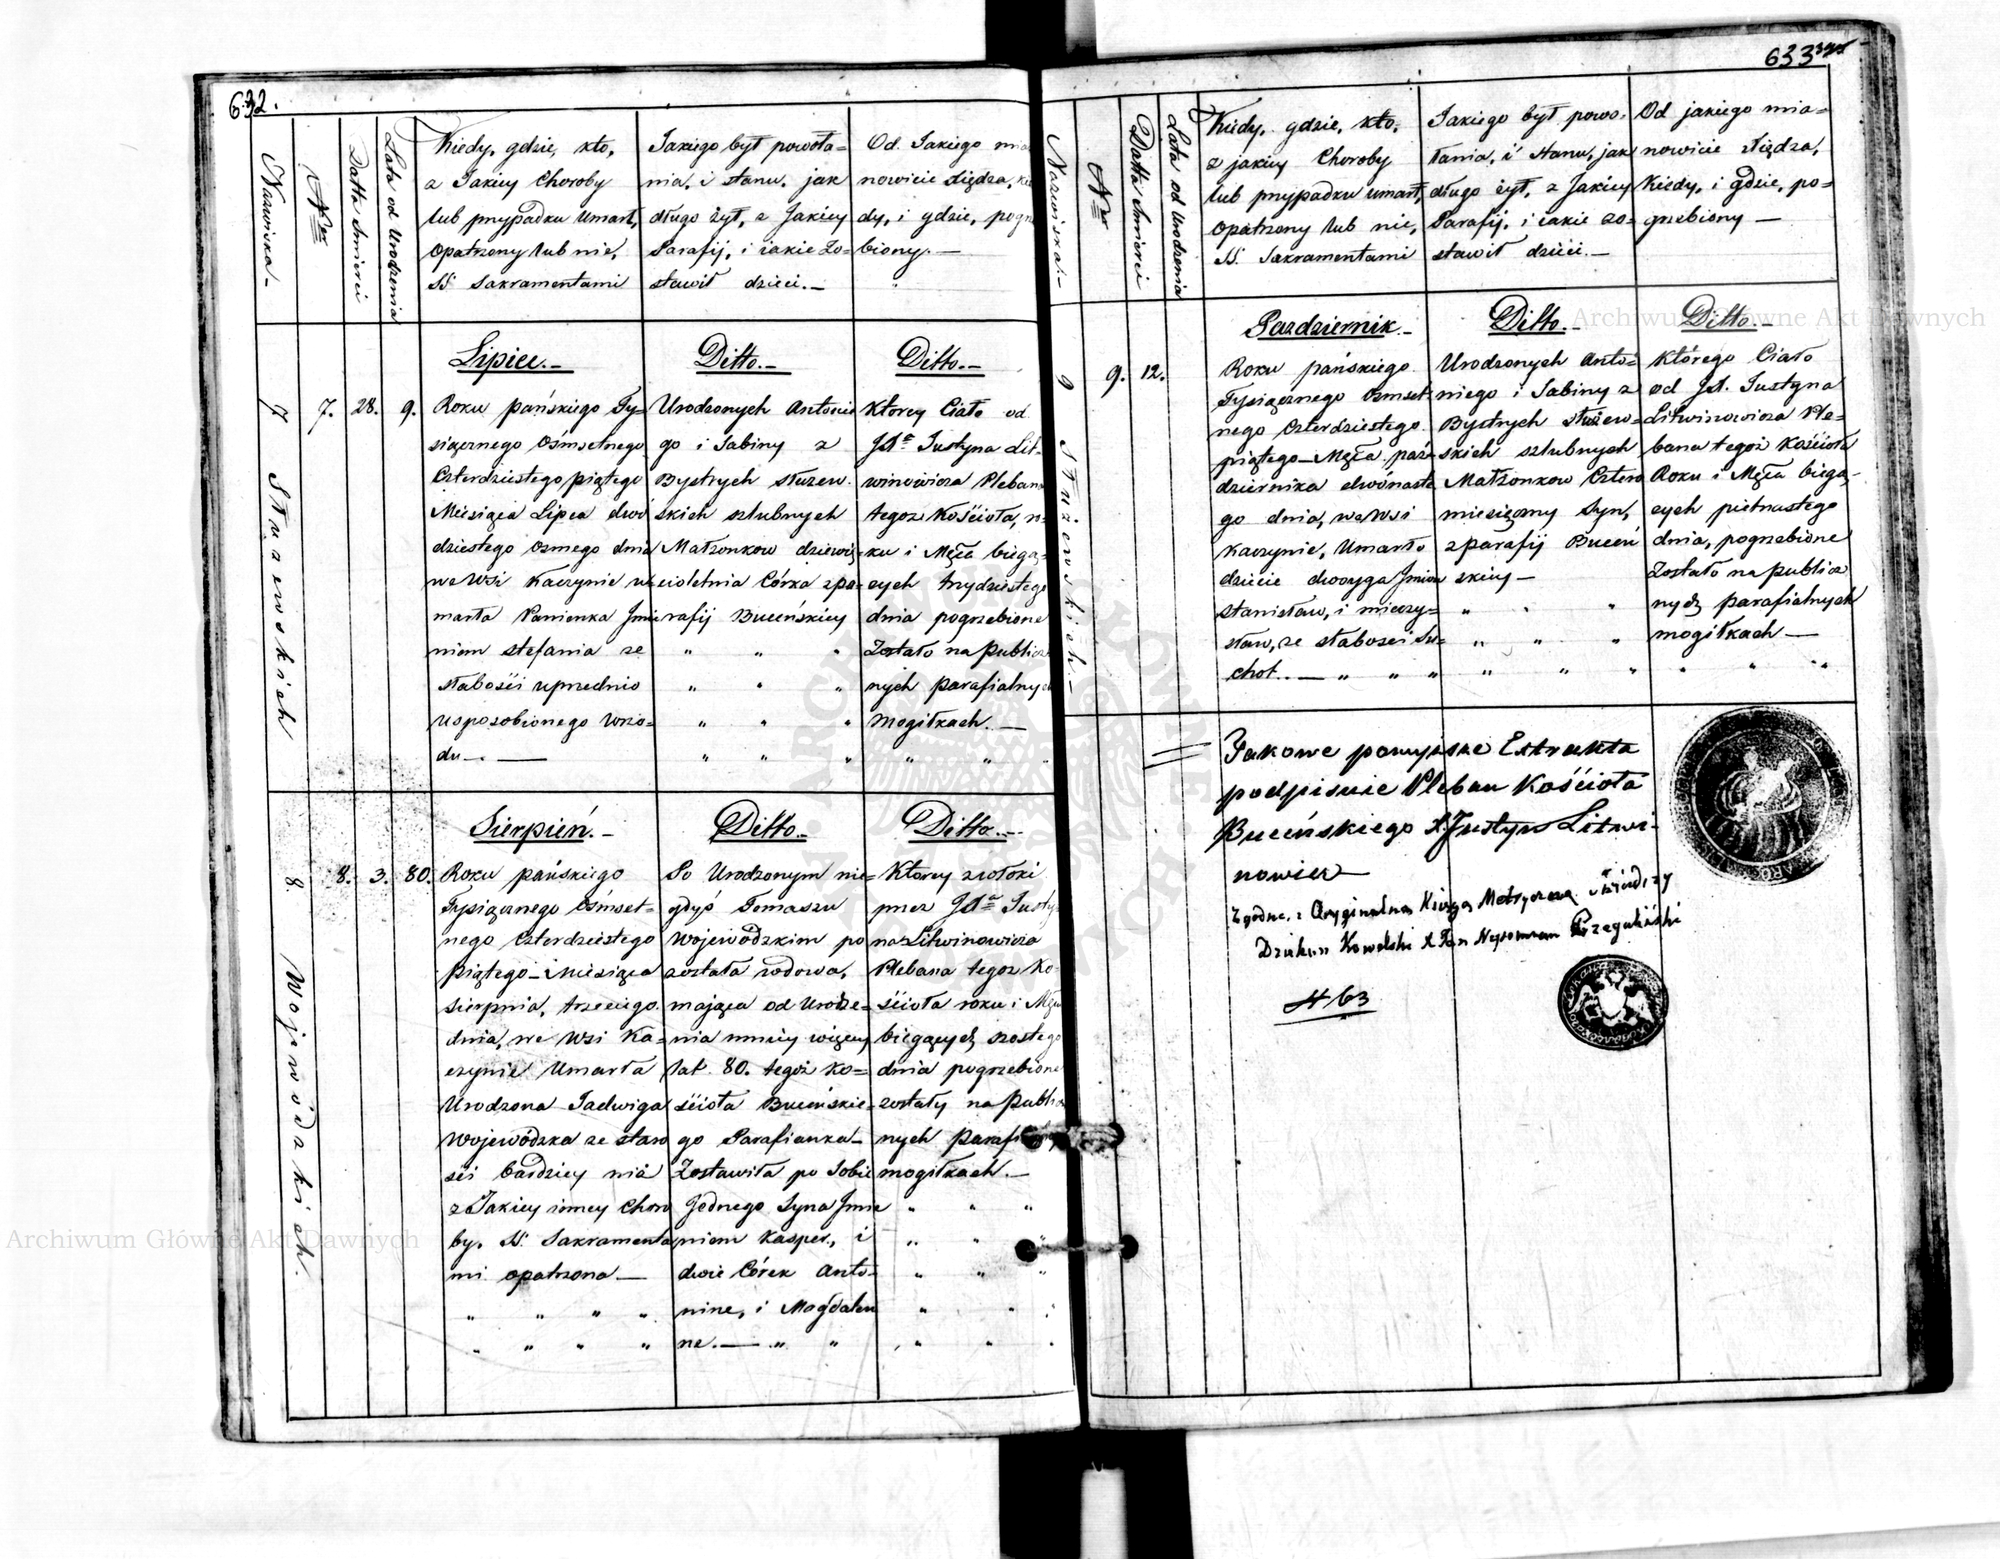 632.
Nazwiska.
Nrr
Datta Smierci
Lata od Urodzenia
Kiedy, gdzie, kto,
z Jakiey Choroby
lub przypadku Umarł,
Opatrzony lub nie,
SS. Sakramentami
Jakiego był powoła=
nia, i stanu, jak
długo żył, z Jakiey
Parafij, i iakie Zo=
stawił dzieci.—
Od Jakiego mia
nowicie Xiędza, kie
dy, i gdzie, pogrze
biony.—
Lipiec.—
Ditto.—
Ditto.—
7
Stużewskich
7.
28.
9.
Roku pańskiego Ty=
siącznego Ośmsetnego
Czterdziestego piątego
Miesiąca Lipca dwó
dziestego Osmego dnia
we Wsi Kaczynie u
marła Panienka Jmie
niem Stefania ze
słabości uprzednio
usposobionego wrzo=
du—
Urodzonych Antonie
go i Sabiny z
Bystrych Stużew=
skich szlubnych
Małżonkow dziewię=
cioletnia Córka z pa=
rafij Buceńskiey
Ktorey Ciało od
Jdx Justyna Lit=
winowicza Plebana
tegoż Kościoła, ro
ku i Mca biegą=
cych trzydziestego
dnia pogrzebione
Zostało na publicz
nych parafialnych
Mogiłkach.—
Sierpień.—
Ditto.—
Ditto.—
8.
Wojewódzkich.
8.
3.
80.
Roku pańskiego
Tysiącznego Ośmset=
nego Czterdziestego
piątego miesiąca
Sierpnia, trzeciego
dnia, we Wsi Ka=
czynie Umarła
Urodzona Jadwiga
Wojewódzka ze staro
ści bardziey niż
z Jakiey inney Choro
by, SS. Sakramenta
mi opatrzona—
Po Urodzonym nie=
gdyś Tomaszu
Wojewódzkim po
została wdowa,
mająca od Urodze=
nia mniey więcey
lat 80. tegoż Ko=
ścioła Buceńskie=
go Parafianka—
Zostawiła po Sobie
Jednego Syna Jmie
niem Kasper, i
dwie Córek Anto=
nine, i Magdale
ne.—
Ktorey zwłoki
przez Jdx Justy=
na Litwinowicza
Plebana tegoż Ko=
ścioła roku i Mca
biegących szostego
dnia pogrzebione
zostały na public
nych parafi
mogiłkach.—
633
Nazwiska.—
Nrr
Datta Smierci
Lata od Urodzenia
Kiedy, gdzie, kto,
z jakiey Choroby
lub przypadku umarł,
opatrzony lub nie,
SS. Sakramentami
Jakiego był powo=
łania, i stanu, jak
długo żył, z Jakiey
Parafij, i iakie zo=
stawił dzieci.—
Od jakiego mia=
nowicie Xiędza,
Kiedy, i gdzie, po=
grzebiony—
Pazdziernik.—
Ditto.—
Ditto.—
9
Stużewskich.—
9.
12.
Roku pańskiego
Tysiącznego Ośmset
nego Czterdziestego
piątego Mca paź
dziernika dwónaste
go dnia, we Wsi
Kaczynie, Umarło
dziecie dwoyga Jmion
Stanisław, i Mieczy=
sław, ze słabości Su=
chot.—
Urodzonych Anto=
niego i Sabiny z
Bystrych Stużew=
skich szlubnych
Małżonkow Cztero
miesięczny Syn,
z parafij Buceń
skiey—
Którego Ciało
od Jdx. Justyna
Litwinowicza Ple=
bana tegoż Kościoła
Roku i Mca biegą=
cych pietnastego
dnia, pogrzebione
Zostało na publicz
nych parafialnych
mogiłkach—
Jakowe powyższe Extrakta
podpisuie Pleban Kościoła
Buceńskiego X. Justyn Litwi=
nowicz—
Zgodne z Oryginalną Xięgą Metryczną
Dziekan Kowelski X. Jan Nepomucen
N 63
Archiwum Główne Akt Dawnych
Archiwum Główne Akt Dawnych